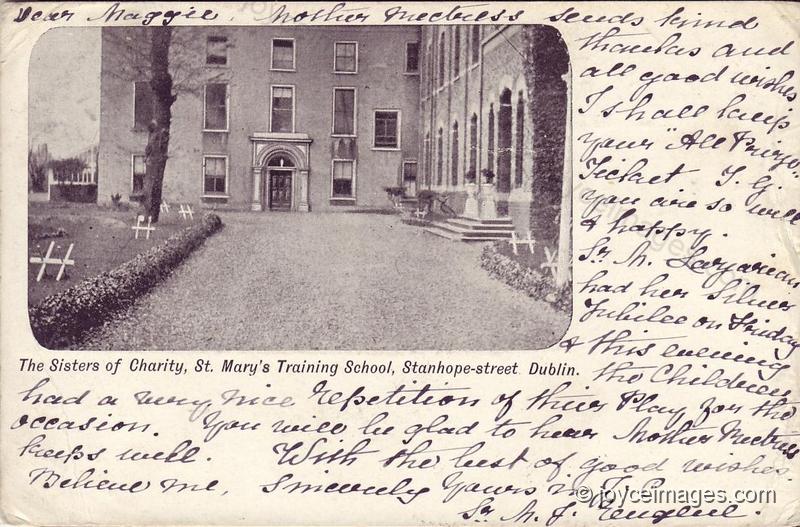 Dear Maggie, Mother Rectress sends kind
thanks and
all good wishes
I shall keep
your "All Prize"
Ticket T. G.
you are so well
& happy.
Sr. M.
had her Silver
Jubilee on Friday
& this evening
the Children
The Sisters of Charity, St. Mary's Training School, Stanhope-street Dublin.
had a very nice Repetition of their Play for the
occasion. You will be glad to hear Mother Rectress
keeps well. With the best of good wishes.
Believe me, Sincerely Yours in
Sr. M. J.
© joyceimages.com